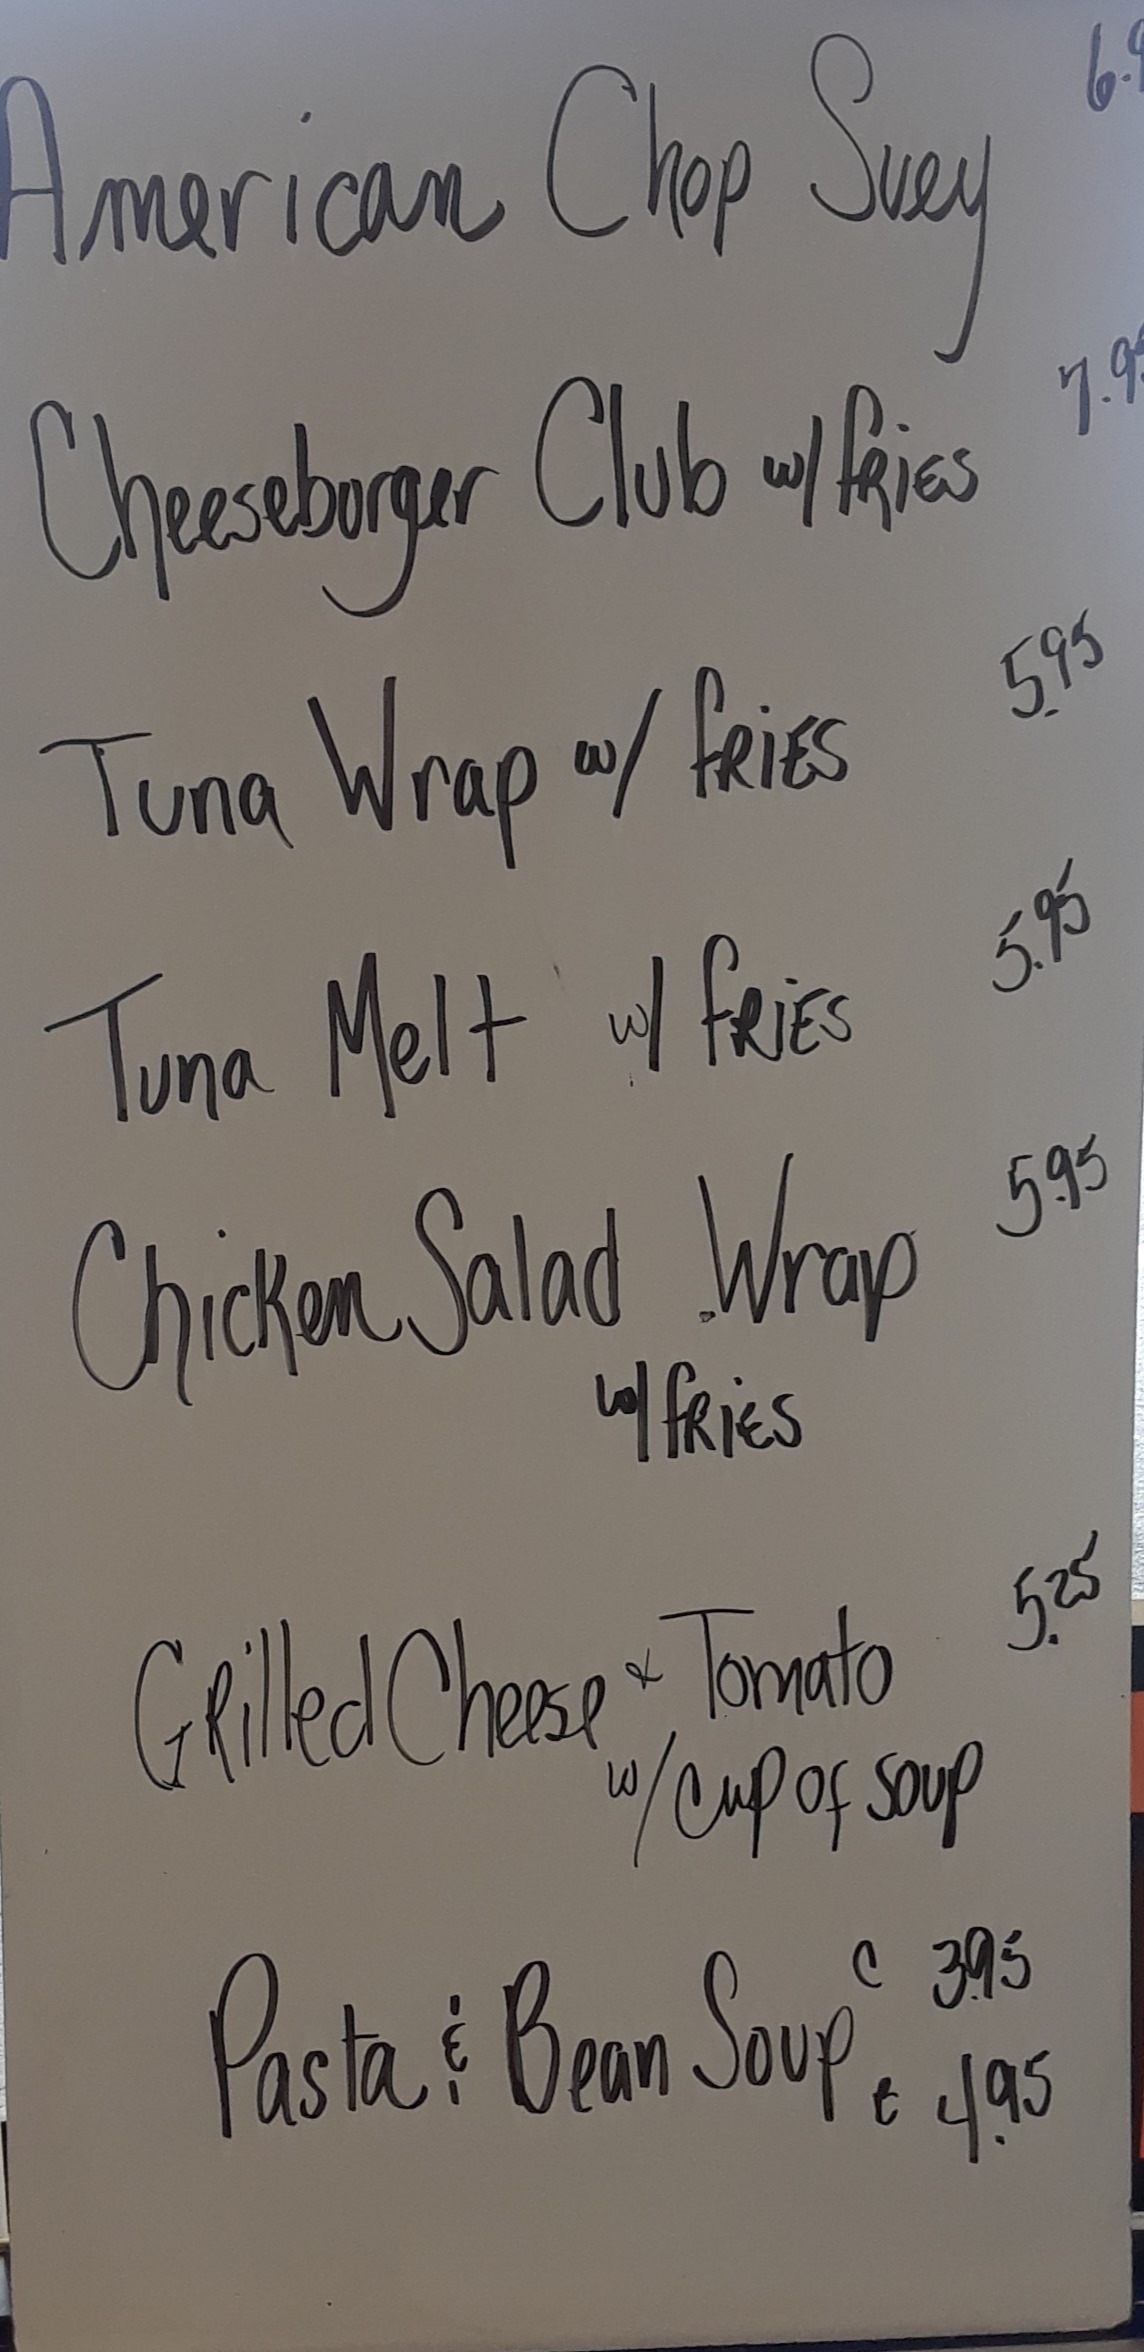 American Chop Suey 6.9
Cheeseburger Club w/ fries 7.95
Tuna Wrap w/ fries 5.95
Tuna Melt w/ fries 5.95
Chicken Salad Wrap 5.95
w/ fries
Grilled Cheese & Tomato 5.25
w/ cup of soup
Pasta & Bean Soup c 3.95
t 4.95